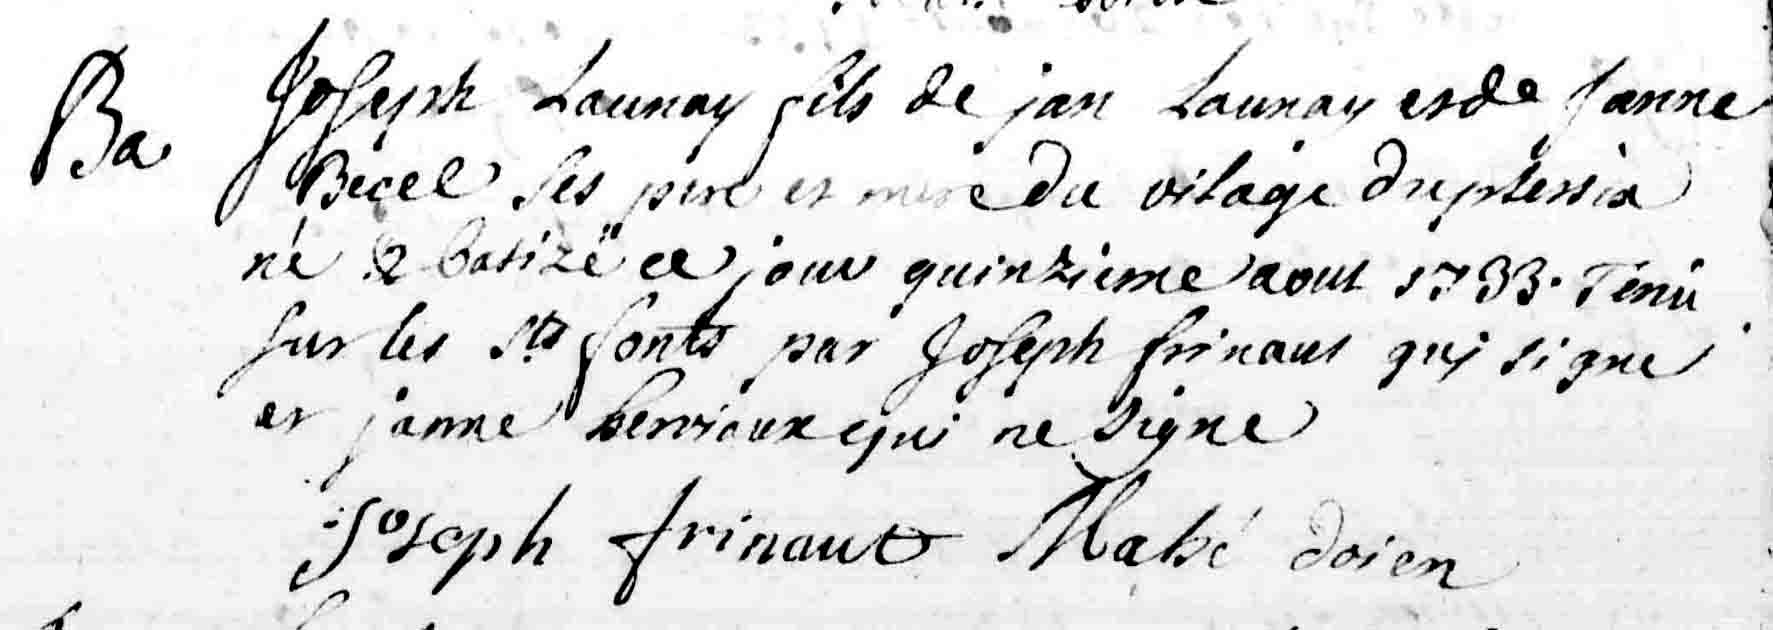 Ba Joseph Launay fils de jan Launay et de Janne
Becel ses pere et mere du vilage du plessix
né & batizé ce jour quinzieme aout 1733. Tenû
sur les Sts fonts par Joseph frinaut qui signe
et janne henrioux qui ne signe
Joseph frinaut Mahé doien